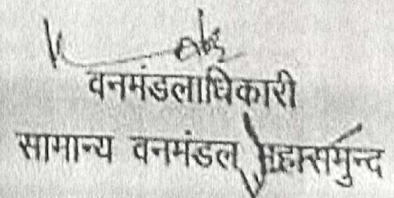 वनमंडलाधिकारी
सामान्य वनमंडल महासमुन्द